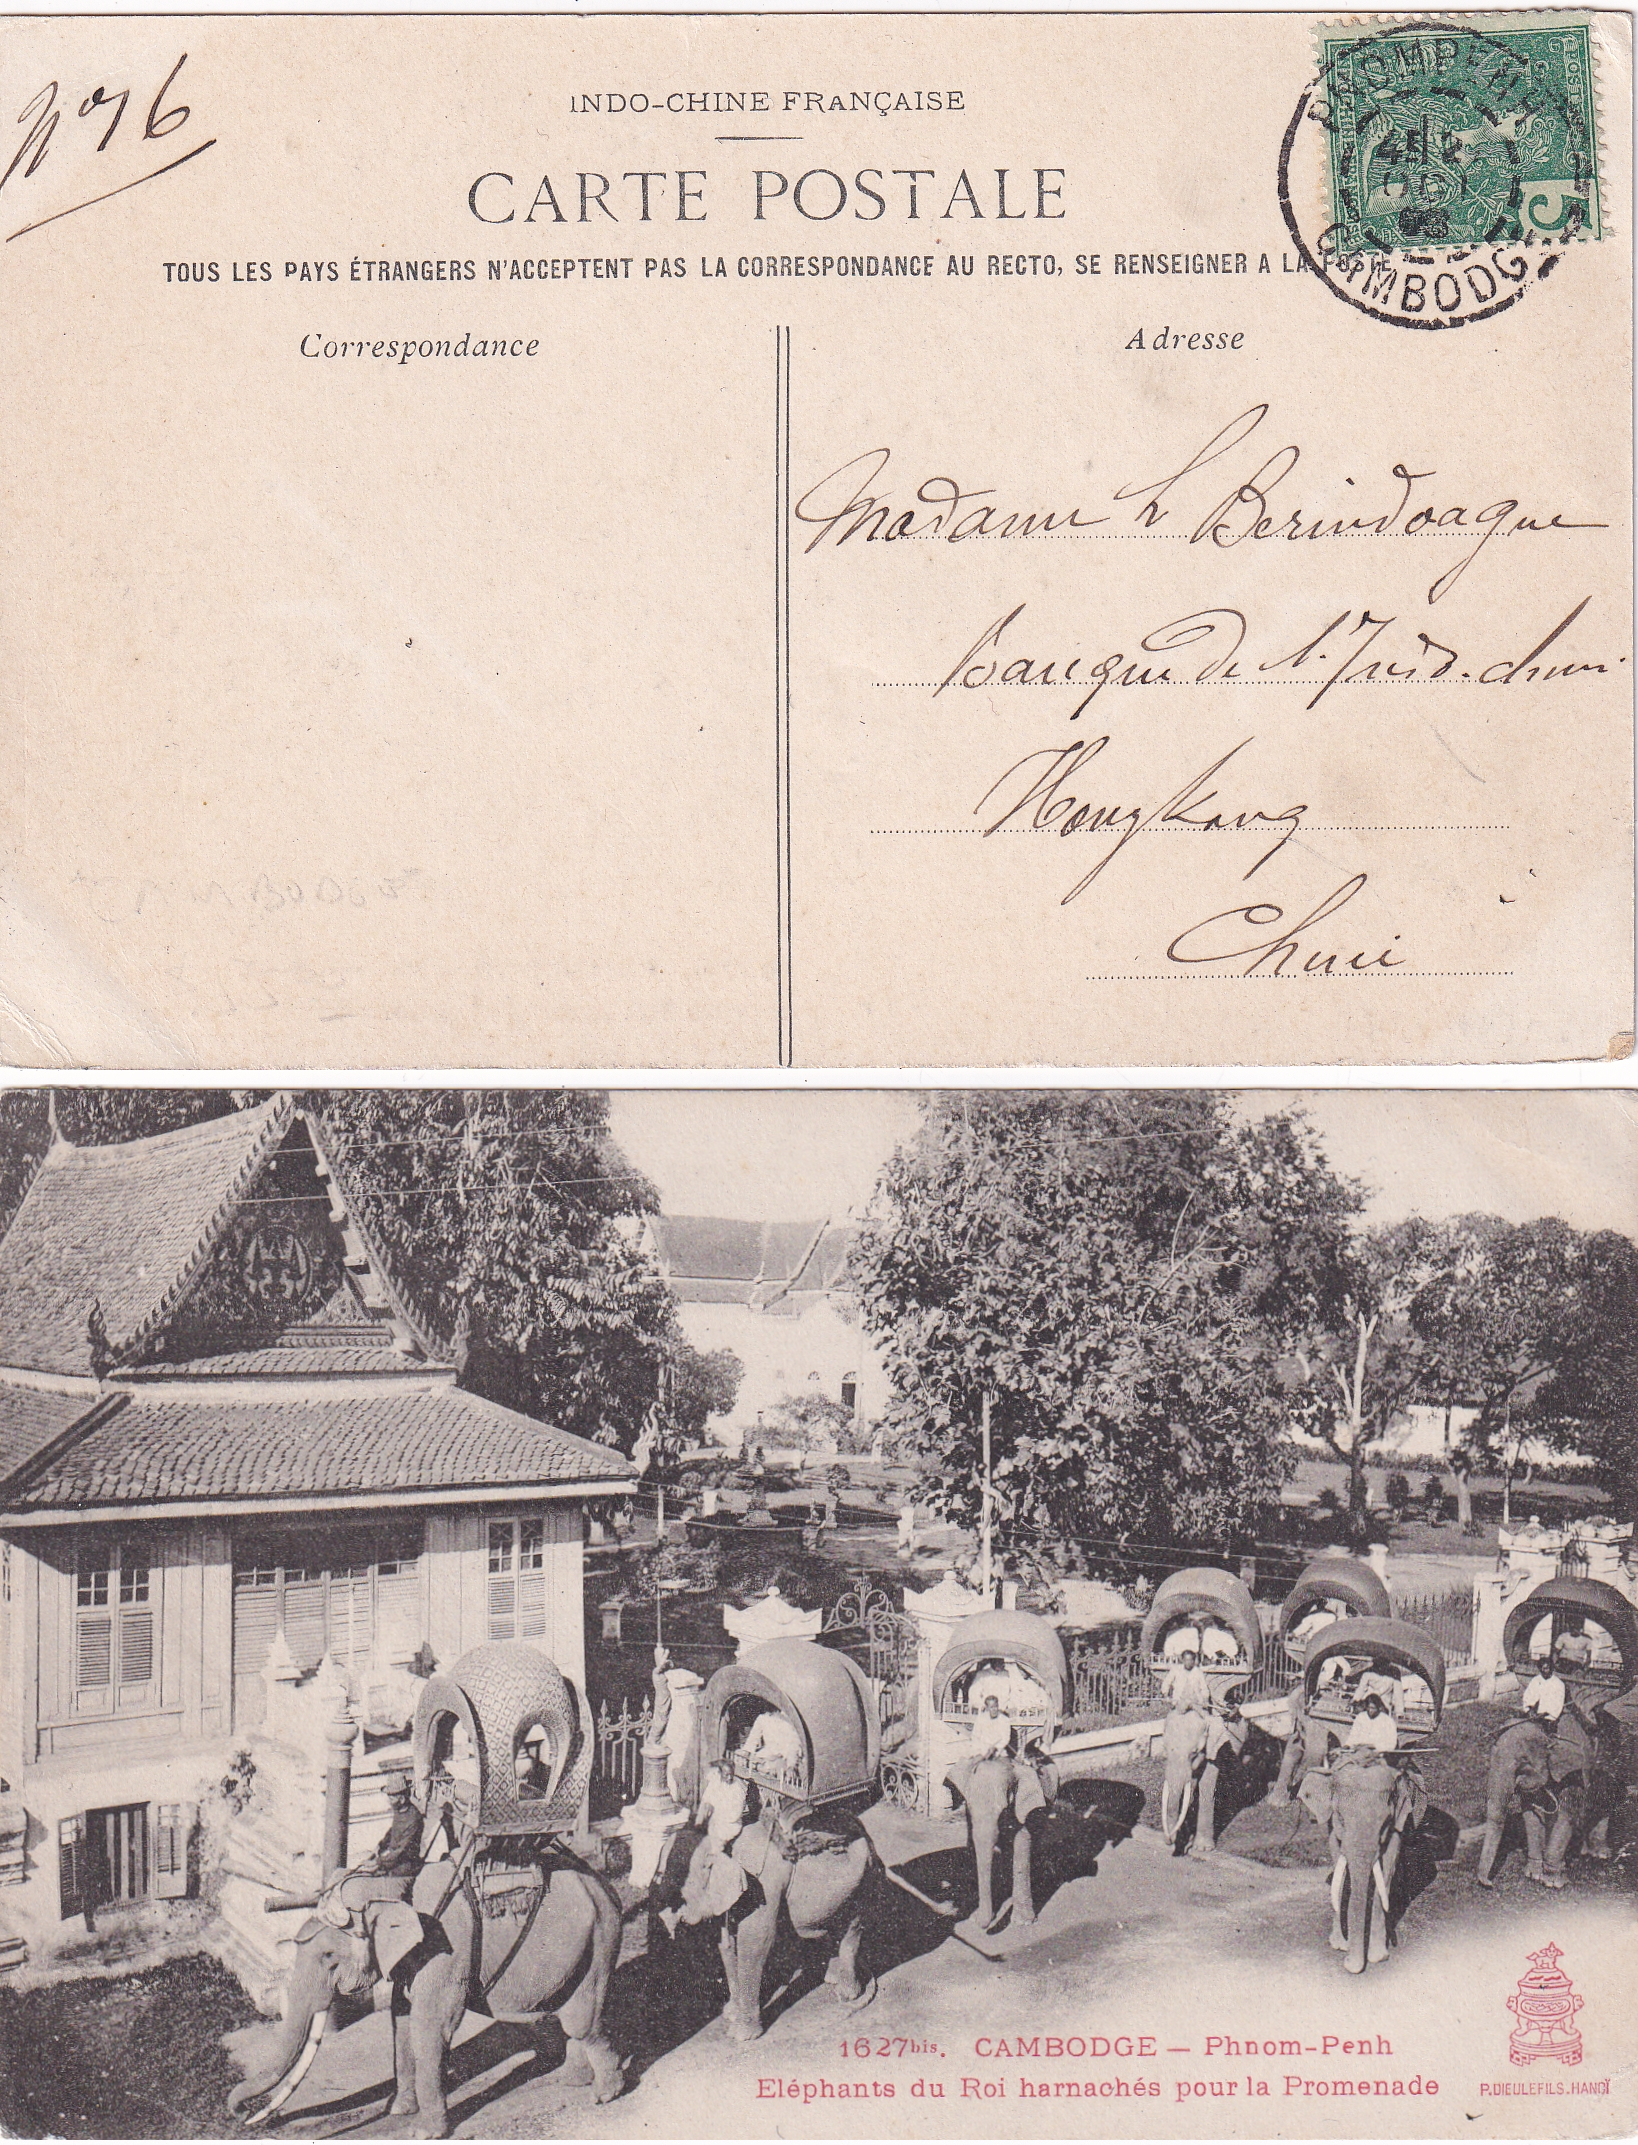 Nº 76
INDO-CHINE FRANÇAISE
CARTE POSTALE
TOUS LES PAYS ÉTRANGERS N'ACCEPTENT PAS LA CORRESPONDANCE AU RECTO, SE RENSEIGNER A LA POSTE
PNOMPENH
CAMBODGE
5
Correspondance
Adresse
Madame L Berindoague
Banque de l'Indo-chine
Hongkong
Chine
CAMBODGE
1627bis. CAMBODGE — Phnom-Penh
Eléphants du Roi harnachés pour la Promenade
P.DIEULEFILS.HANOÏ